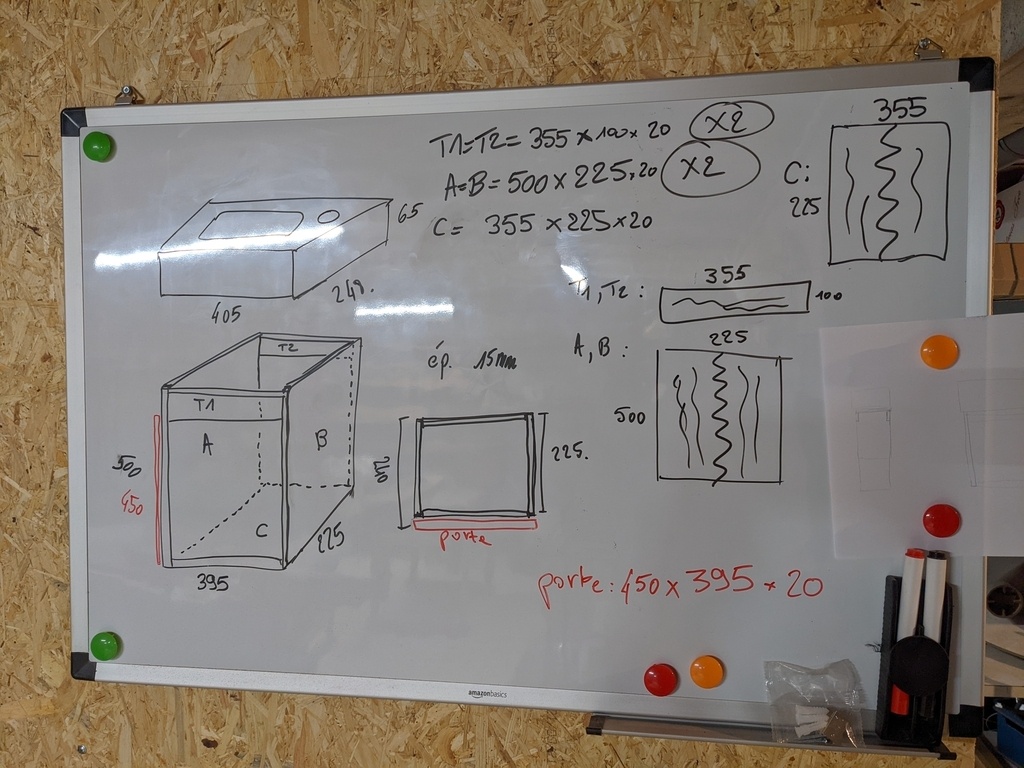 T1=T2= 355 x 100 x 20 x2
A=B= 500 x 225 x 20 x2
C= 355 x 225 x 20
355
C:
225
65
249.
405
T1, T2 :
355
100
A, B :
225
500
ép. 15mm
T2
T1
A
B
C
500
450
225
395
240
225.
porte
porte: 450 x 395 x 20
amazonbasics